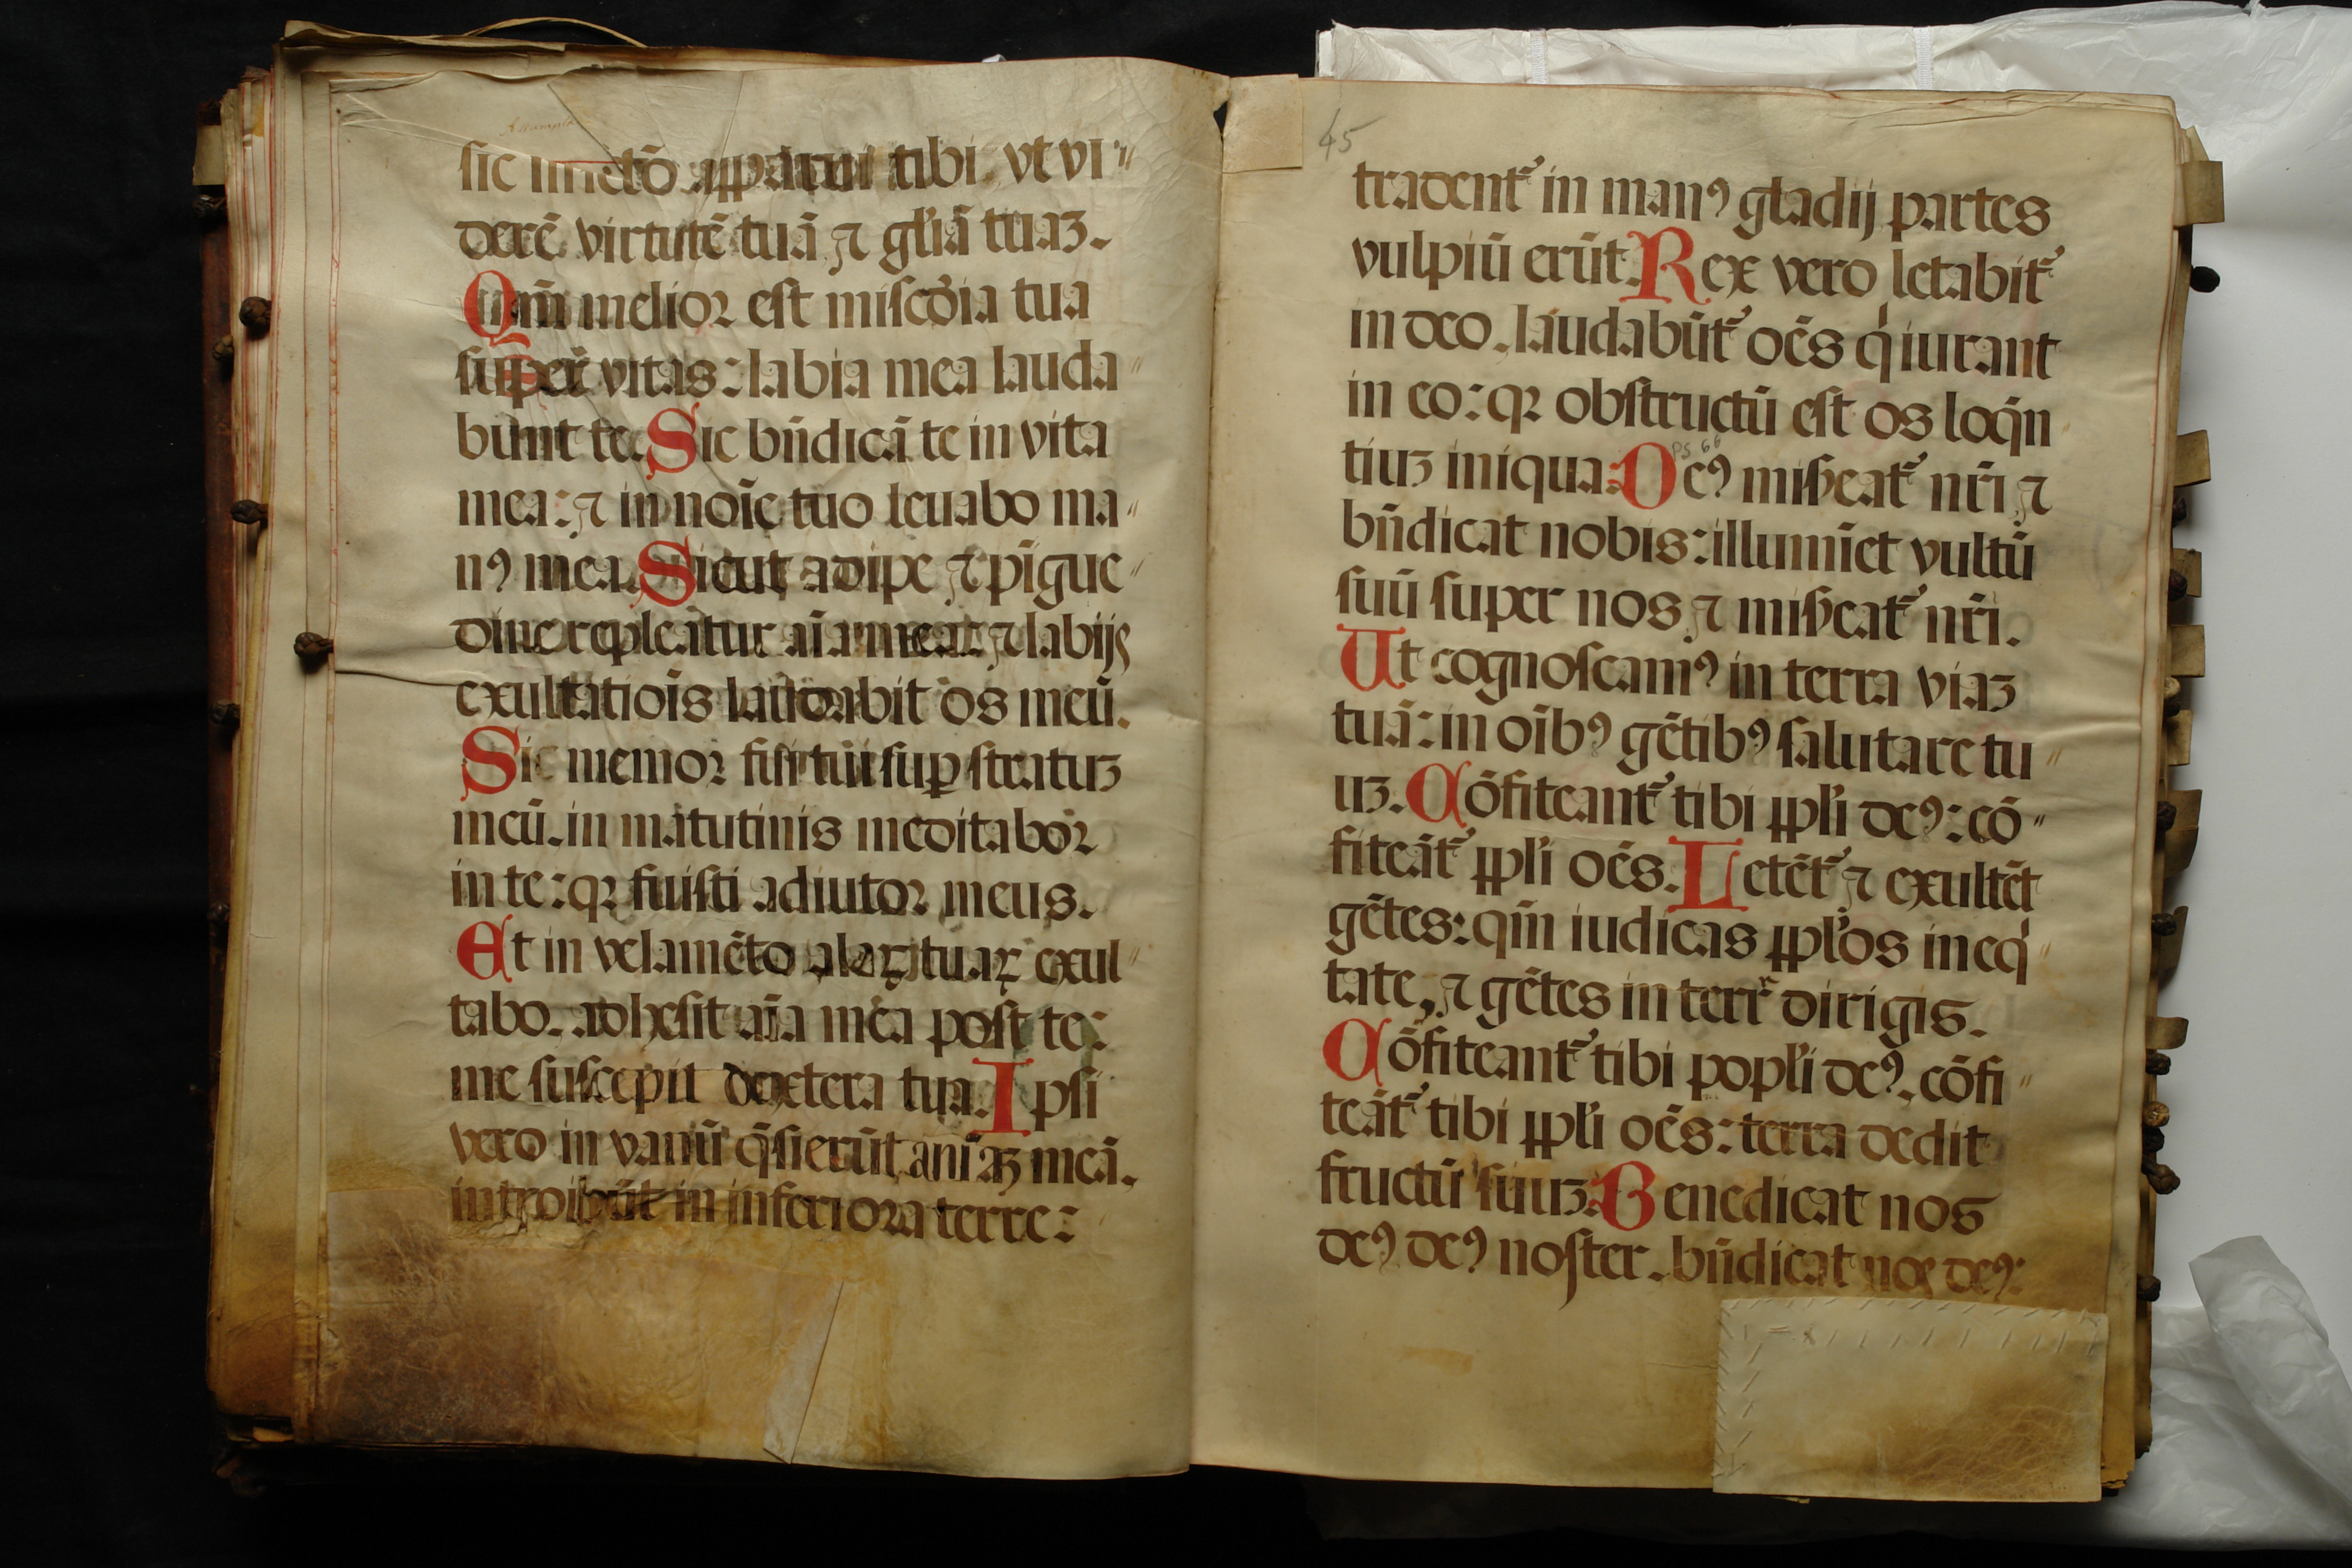 sic in sctō apparui tibi. vt vi"
derē virtutē tuā ⁊ gl'iā tuaꝫ.
Qm̄ melior est miscōia tua
super vitas: labia mea lauda"
bunt te. Sic bn̄dicā te in vita
mea: ⁊ in noīe tuo leuabo ma"
nꝰ mea. Sicut adipe ⁊ pīgue"
dine repleātur aīa mea: ⁊ labijs
exultatiōis laudabit os meū.
Sic memor fui tui suꝑ stratuꝫ
meū. in matutinis meditabor
in te: qꝛ fuisti adiutor meus.
Et in velamēto alaꝝ tuaꝝ exul"
tabo. adhesit aīa mea post te:
me suscepit dextera tua. Ipsi
vero in vanū q̄sierūt aniāꝫ meā.
introibūt in inferiora terre:
45
tradent᷑ in manꝰ gladij partes
vulpiū erūt. Rex vero letabit᷑
in deo. laudabūt᷑ oēs qͥ iurant
in eo: qꝛ obstructū est os loq̄n
tiuꝫ iniqua: Deꝰ misẜeat᷑ nr̄i ⁊
ps 66
bn̄dicat nobis: illumīet vultū
suū super nos ⁊ misẜeat᷑ nr̄i.
Ut cognoscamꝰ in terra viaꝫ
tuā: in oībꝰ gētibꝰ salutare tu"
uꝫ. Cōfiteant᷑ tibi ppl'i deꝰ: cō"
fiteāt᷑ ppl'i oēs. Letēt᷑ ⁊ exultēt
gētes: qm̄ iudicas ppl'os in eqͥ"
tate, ⁊ gētes in terr᷑ dirigis.
Cōfiteant᷑ tibi popl'i deꝰ. cōfi"
teāt᷑ tibi ppl'i oēs: terra dedit
fructū suuꝫ. Benedicat nos
deꝰ deꝰ noster. bn̄dicat nos deꝰ: